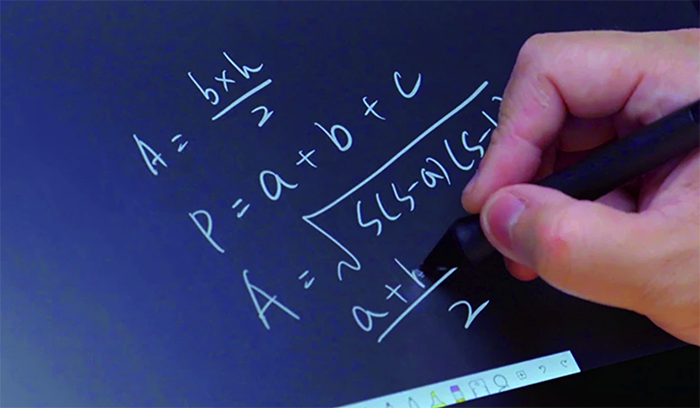 A = b×h/2
P = a + b + c
A = √s(s-a)(s-
a+h/2